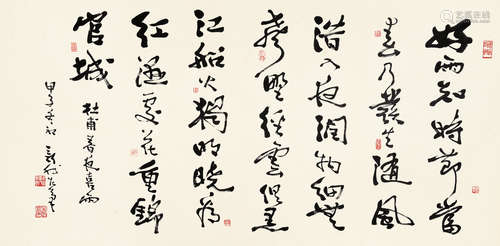 好雨知时節當
春乃發生随風
潜入夜润物细無
聲野徑雲俱黑
江船火獨明曉看
紅濕處花重錦
官城
杜甫春夜喜雨
甲子